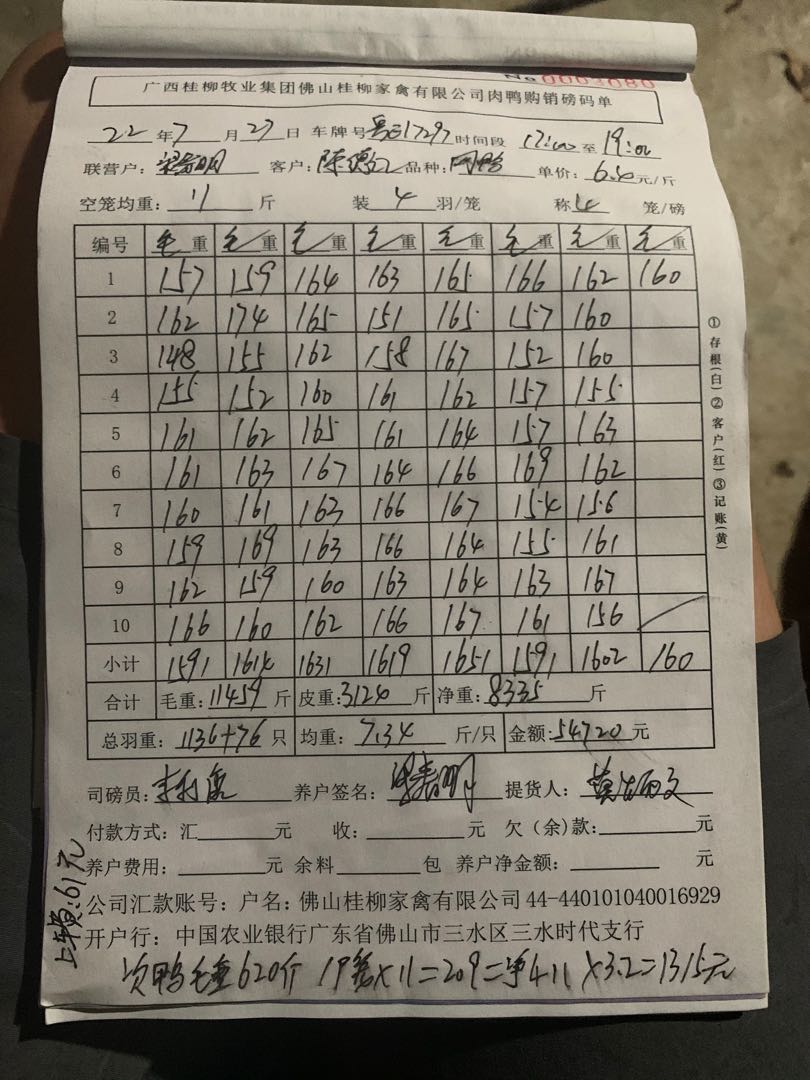 No 0003080
广西桂柳牧业集团佛山桂柳家禽有限公司肉鸭购销磅码单
22年7月27日 车牌号 17297 时间段 17:00至19:00
联营户: 明 客户:陈德 品种: 鸭 单价:6.40元/斤
空笼均重: 11 斤 装 4 羽/笼 称 4 笼/磅
编号 毛重 毛重 毛重 毛重 毛重 毛重 毛重 毛重
1 157 159 164 163 165 166 162 160
2 162 174 165 151 165 157 160
3 148 155 162 158 167 152 160
4 155 152 160 161 162 157 155
5 161 162 165 161 164 157 163
6 161 163 167 164 166 169 162
7 160 161 163 166 167 154 156
8 159 169 163 166 164 155 161
9 162 159 160 163 164 163 167
10 166 160 162 166 167 161 156
小计 1591 1614 1631 1619 1651 1591 1602 160
合计 毛重:11459斤 皮重:3124斤 净重:8335斤
总羽重: 1136+76只 均重: 7.34 斤/只 金额:54720元
司磅员: 养户签名: 明 提货人:
付款方式:汇 元 收: 元 欠(余)款: 元
养户费用: 元 余料 包 养户净金额: 元
公司汇款账号:户名:佛山桂柳家禽有限公司 44-440101040016929
开户行:中国农业银行广东省佛山市三水区三水时代支行
次鸭毛重620斤 19笼×11=209=净411×3.2=1315元
上车费:61元
①存根(白)②客户(红)③记账(黄)